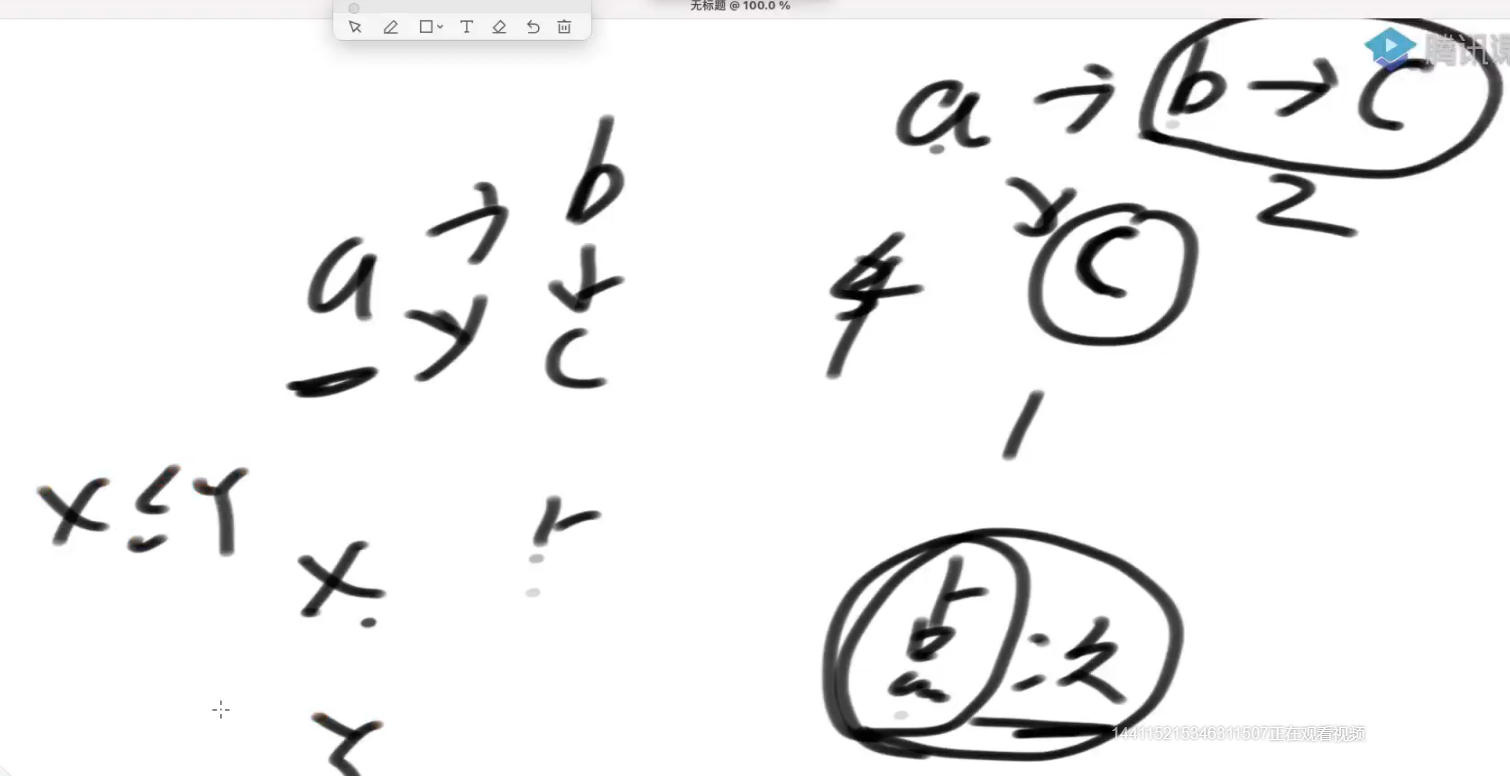 无标题 @ 100.0 %
T
腾讯课
a → b → c
↘
c
2
1
a → b
↘ ↓
c
X ≤ Y
X
点次
Y
144115215346311507正在观看视频